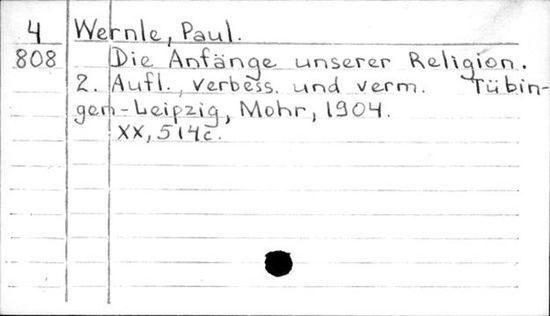 4 Wernle, Paul.
808 Die Anfänge unserer Religion.
2. Aufl., verbess. und verm. Tübin-
gen-Leipzig, Mohr, 1904.
XX, 514c.